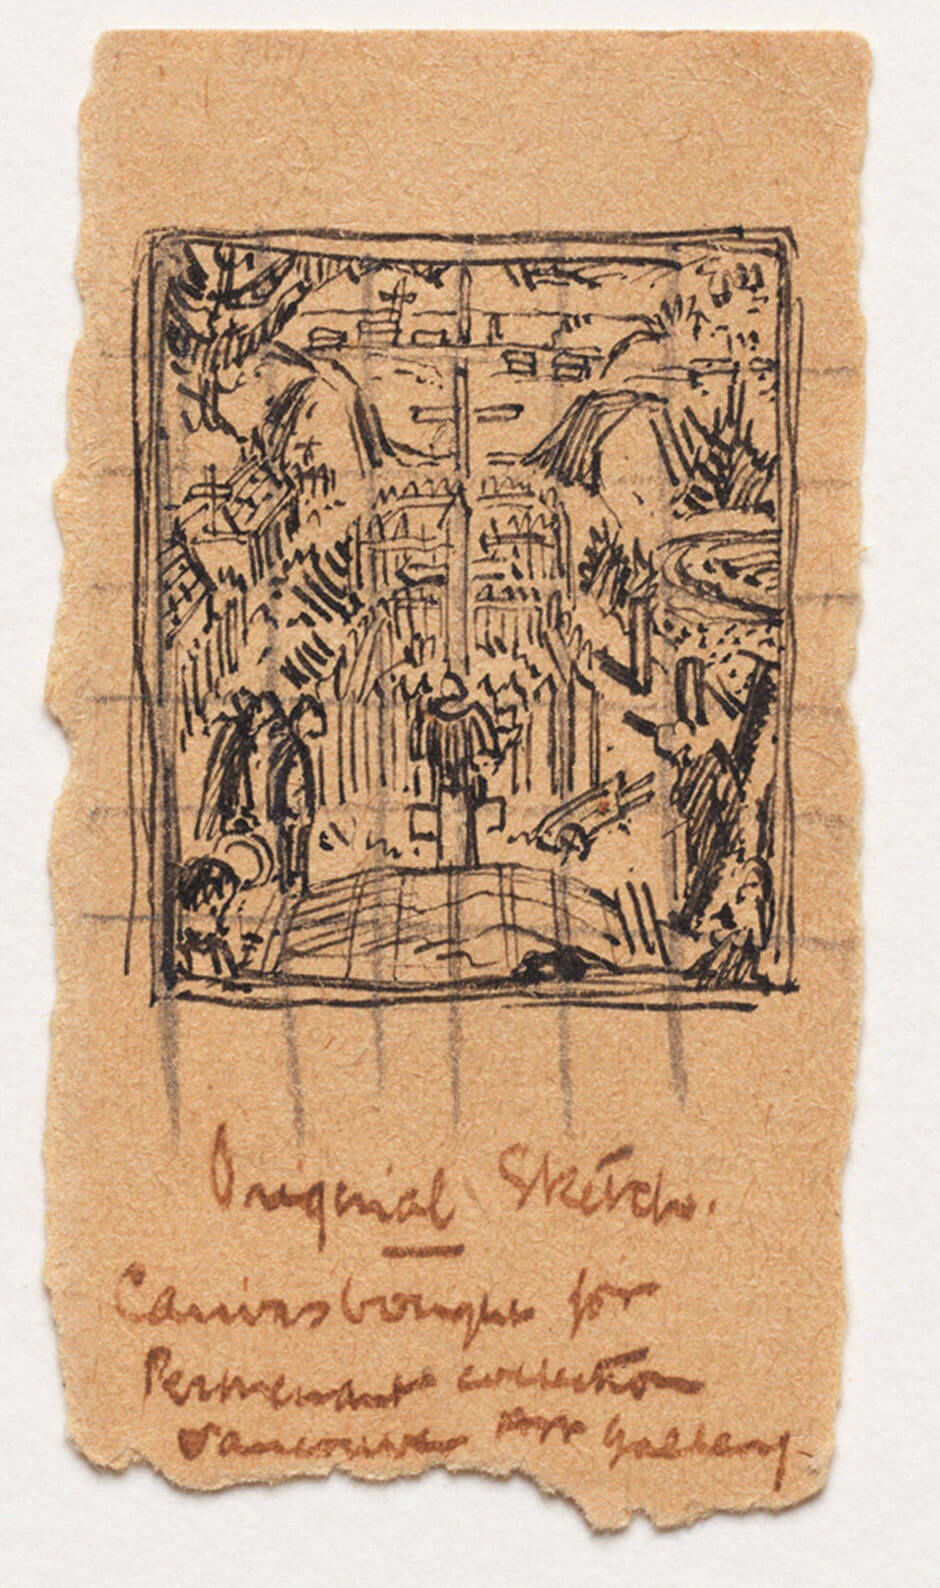 Original Sketch.
Canvas bought for
Permenant collection
Vancouver Art Gallery-